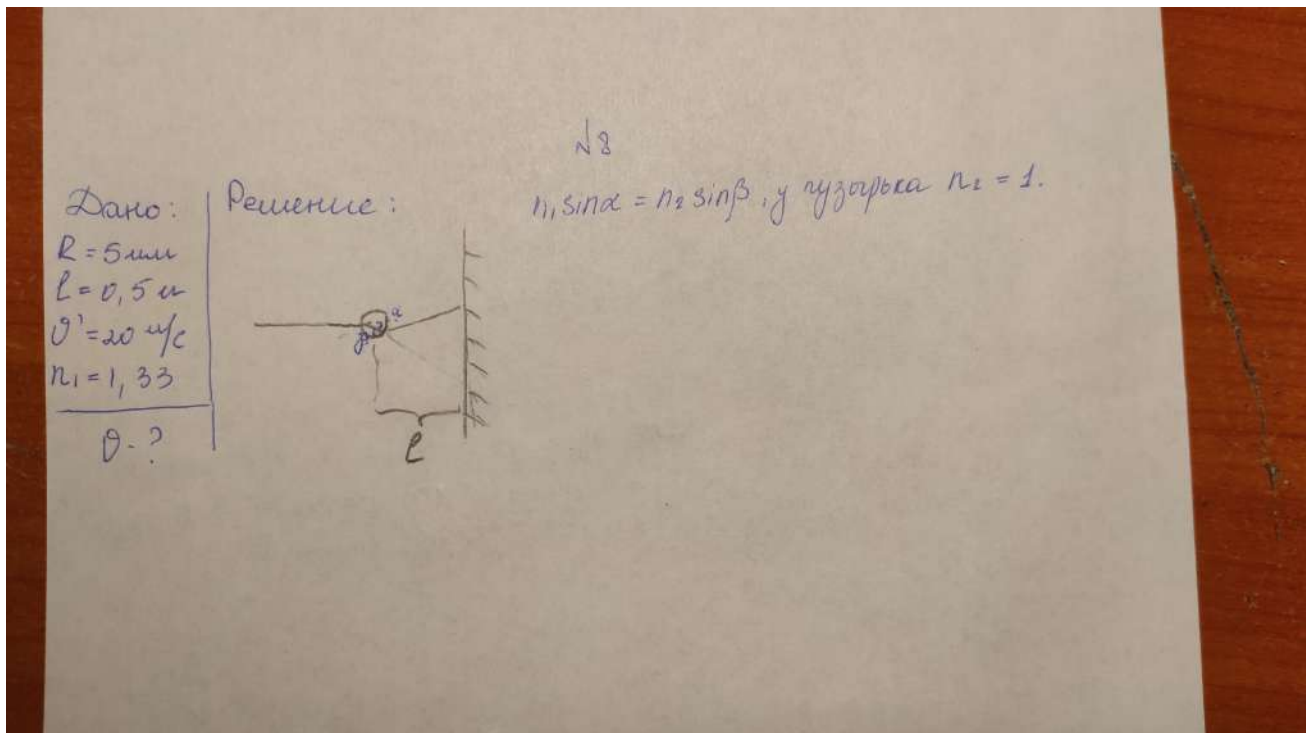 №8
Дано:
R = 5 мм
l = 0,5 м
υ' = 20 м/с
n₁ = 1,33
υ - ?
Решение:
n₁ sinα = n₂ sinβ, у пузырька n₂ = 1.
α
β
l